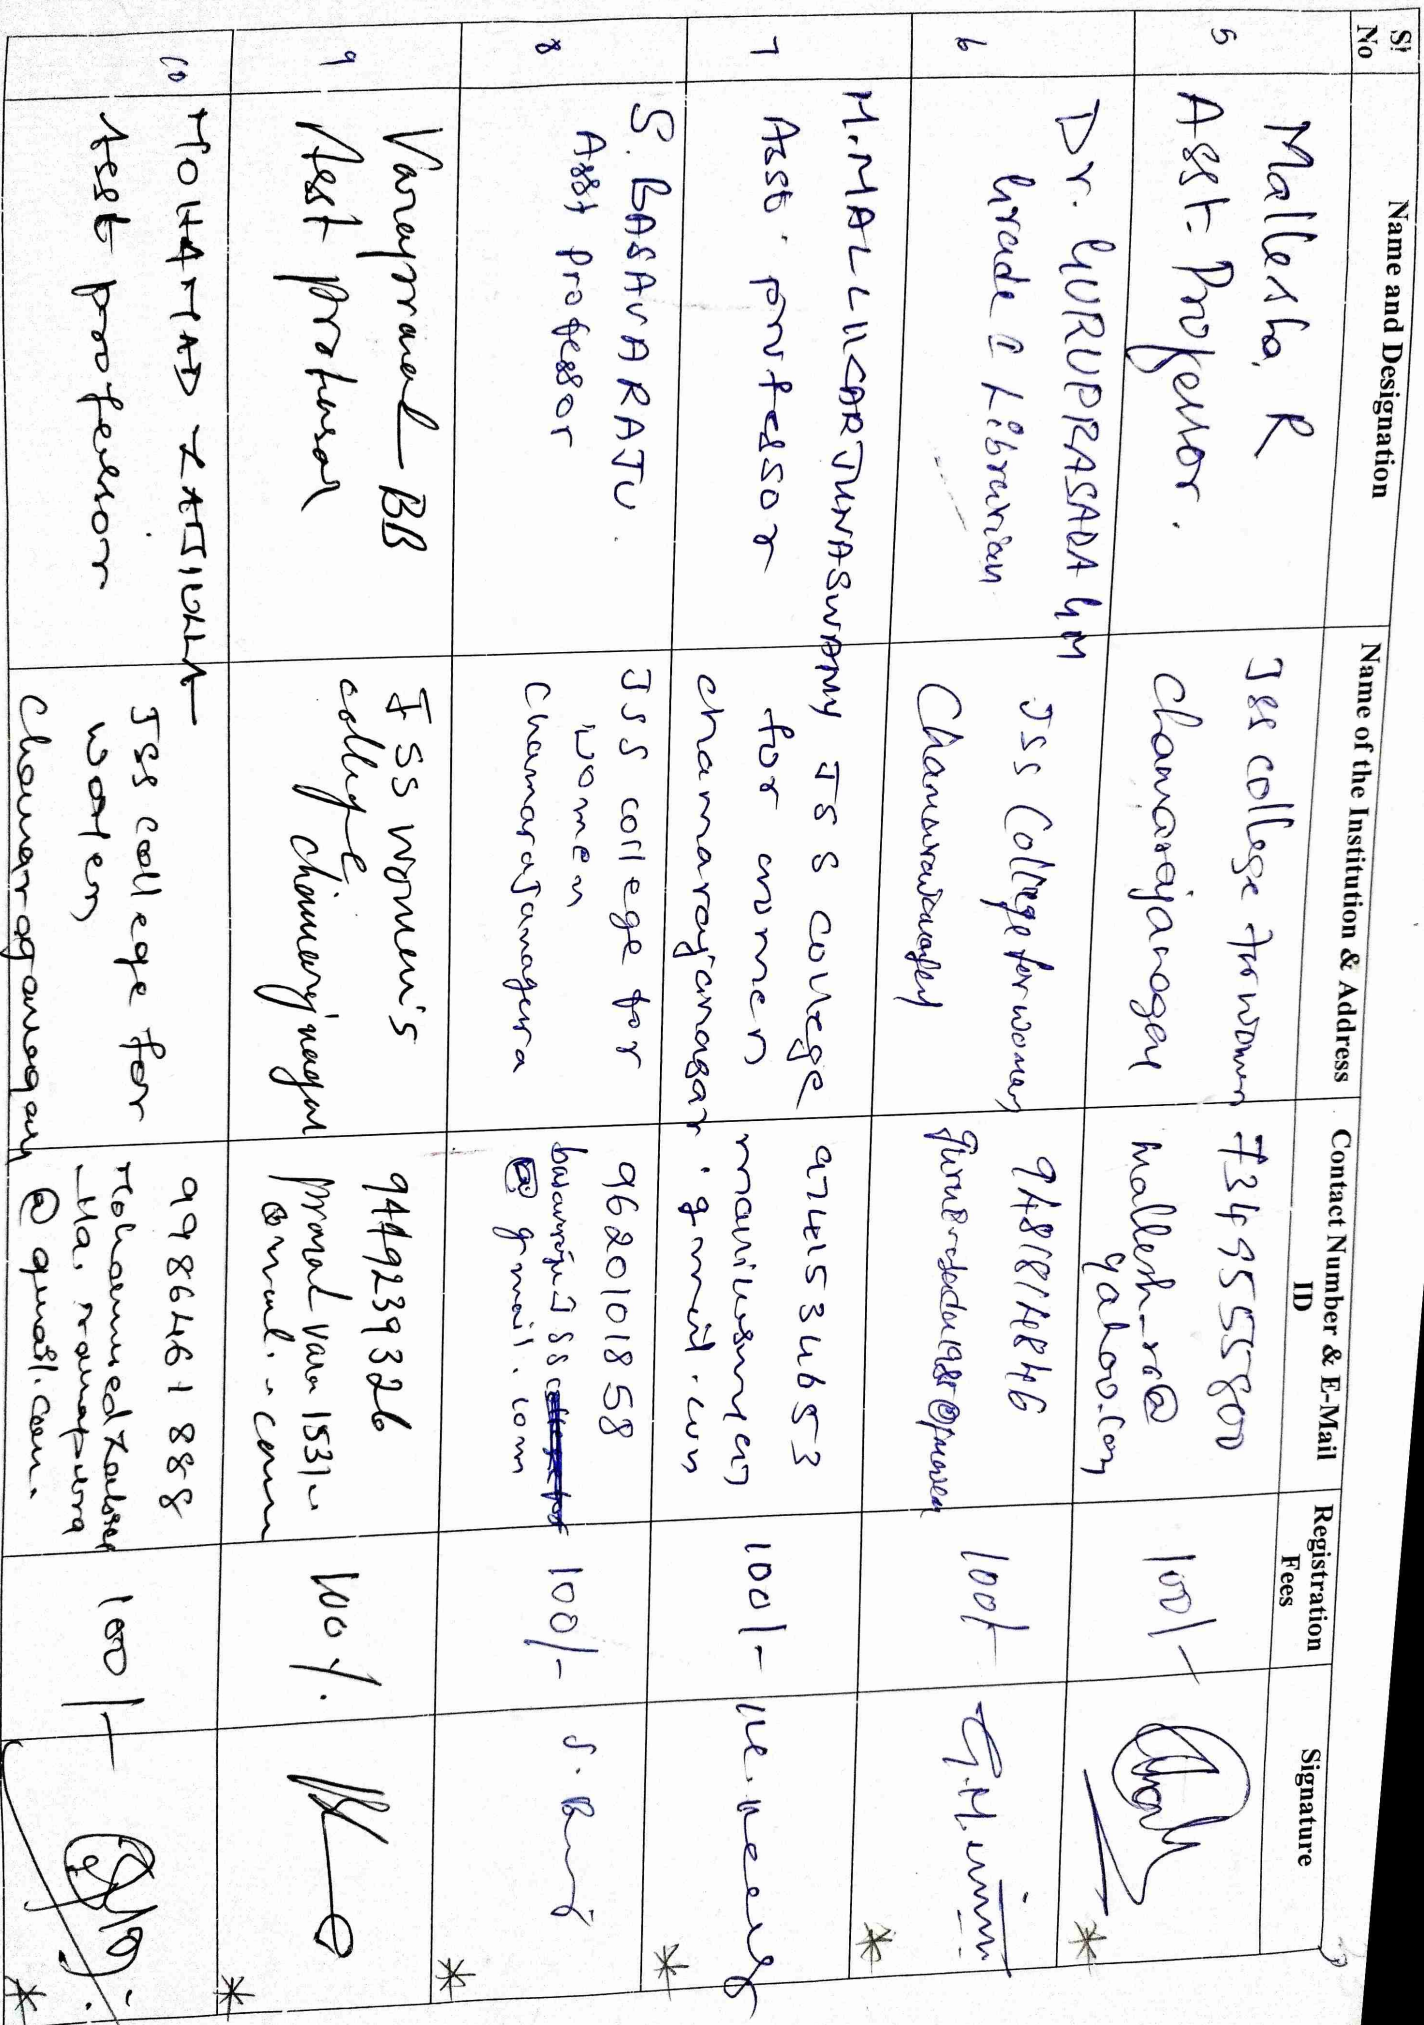 Sl No
Name and Designation
Name of the Institution & Address
Contact Number & E-Mail ID
Registration Fees
Signature
5
Mallesha. R
Asst. Professor.
JSS college for women
Chamarajanagar
7349555800
mallesh_r@
yahoo.com
100/-
6
Dr. GURUPRASADA GM
Grade I Librarian
JSS College for women
Chamarajanagar
9481814846
100/-
7
M. MALLIKARJUNASWAMY
Asst. professor
JSS college
for women
chamarajanagar
9741534653
gmail.com
100/-
8
S. BASAVARAJU.
Asst professor
JSS college for
women
Chamarajanagara
9620101858
basavarajuJSS
@gmail.com
100/-
9
Varaprasad BB
Asst professor
JSS women's
college
chamarajnagar
9449239326
100/.
10
MOHAMAD ZABIULLA
Asst professor
JSS college for
women
Chamarajanagar
9986461888
@gmail.com.
100/-